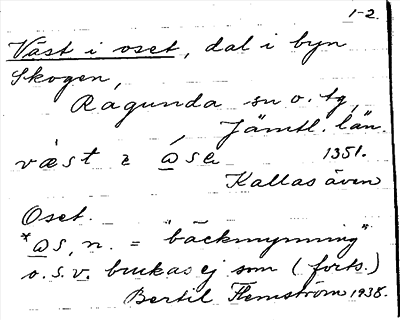 1-2.
Väst i oset, dal i byn
Skogen,
Ragunda sn o. tg,
Jämtl. län.
væst
1351.
Kallas även
Oset.
n. = "bäckmynning"
o.s.v. brukas ej som (forts.)
Bertil Flemström 1938.